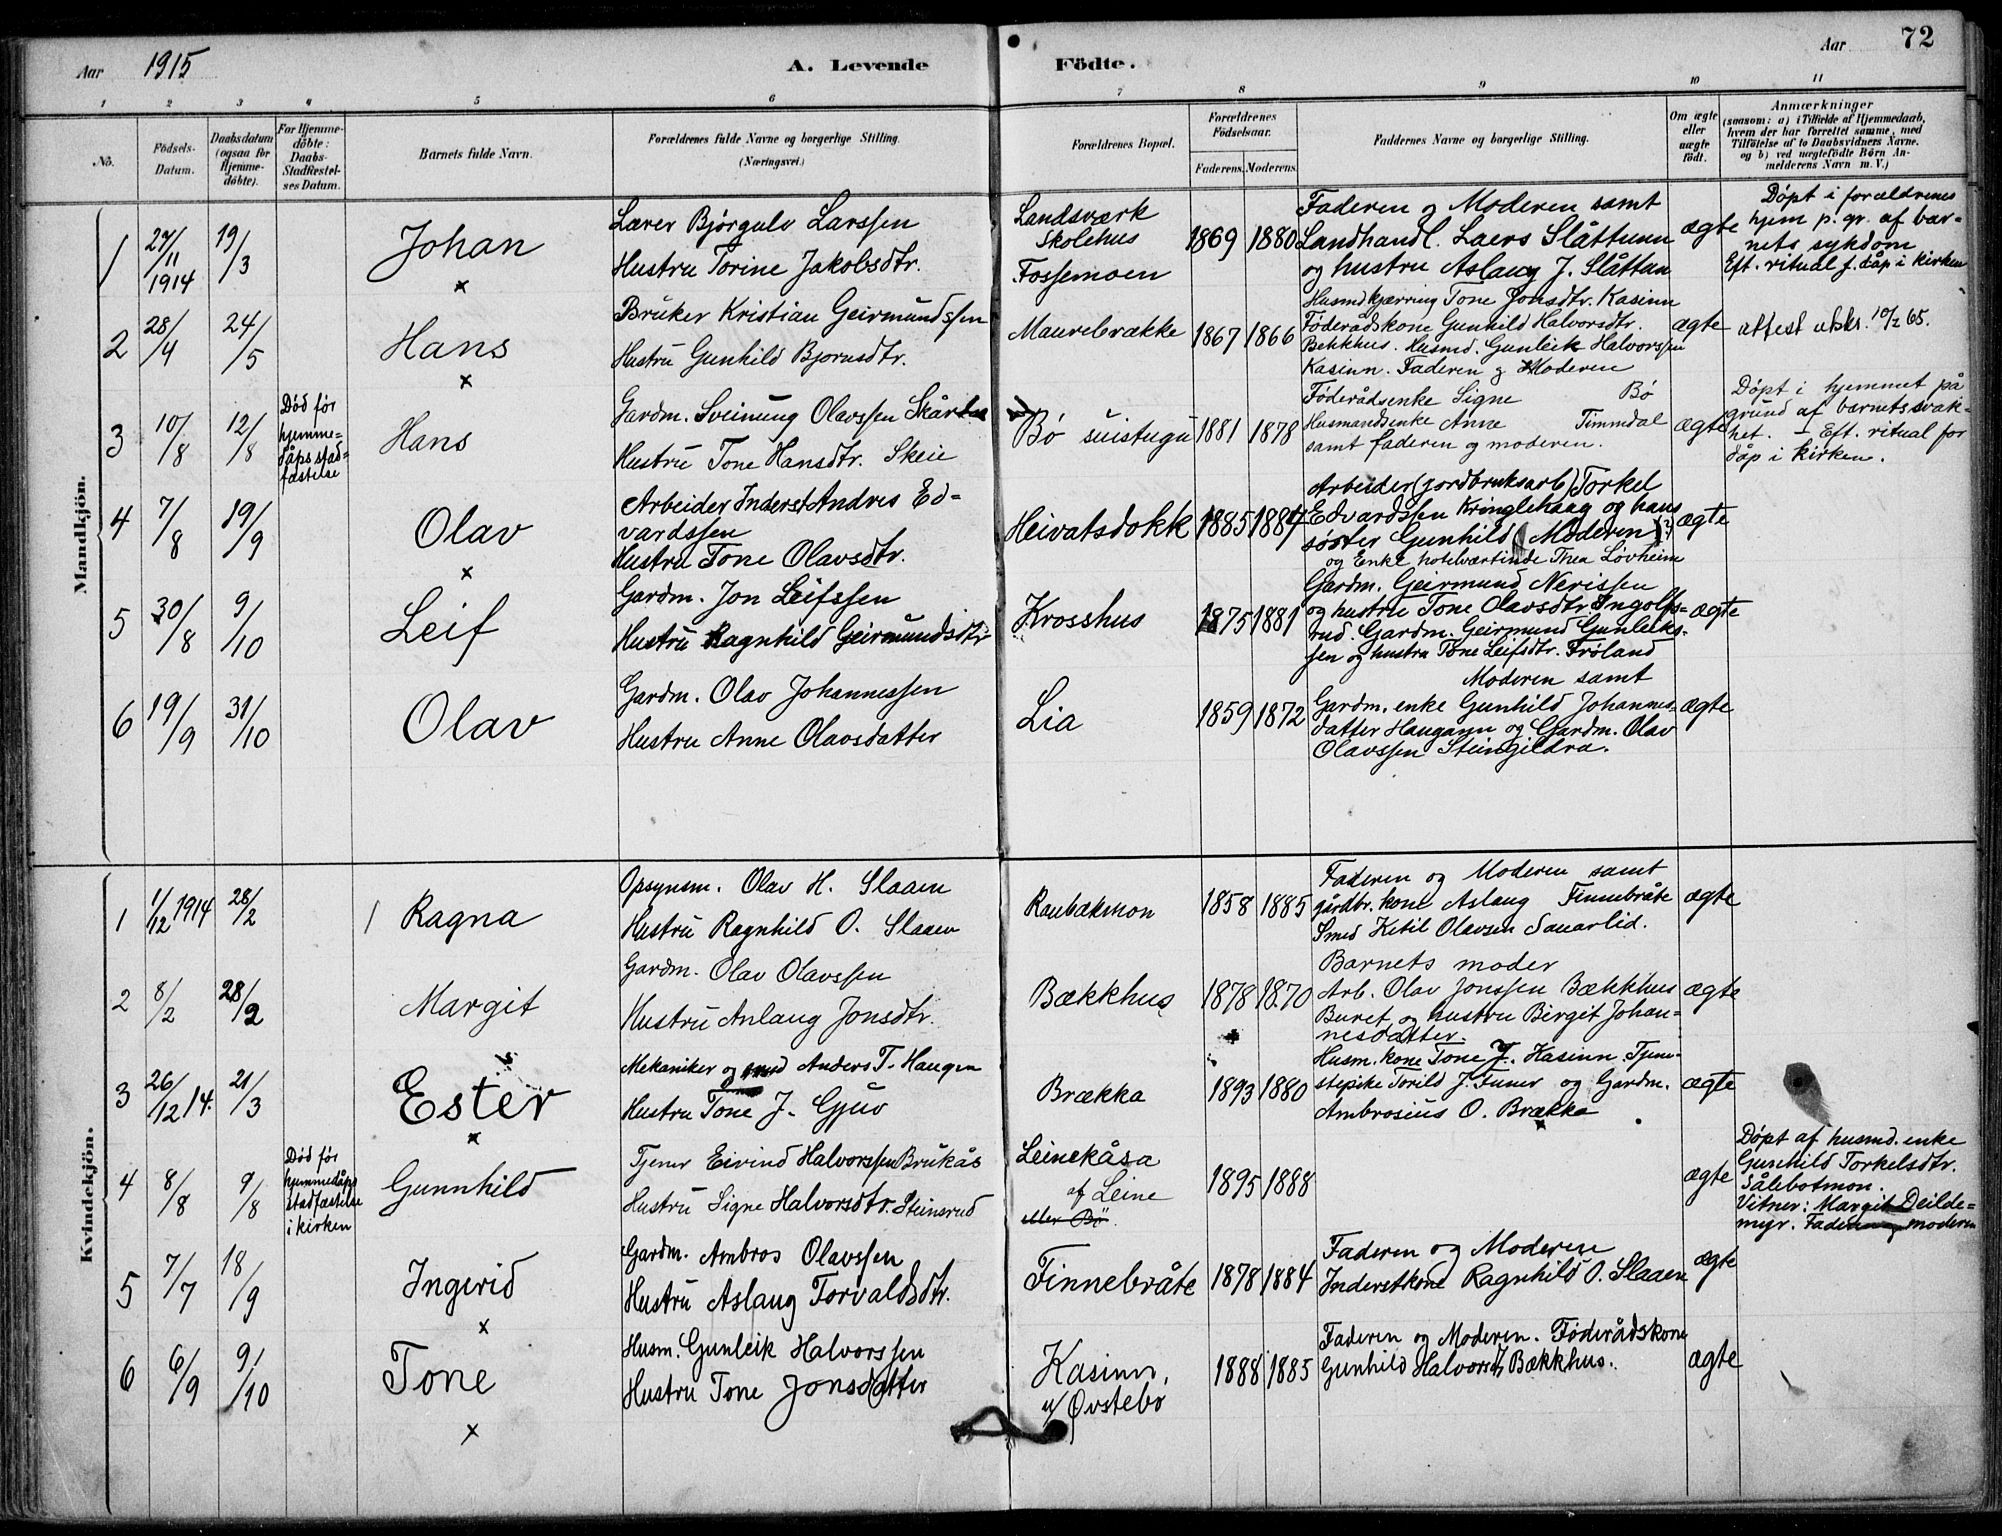 Aar 1915
A. Levende Födte.
Aar 72
1 2 3 4 5 6 7 8 9 10 11
No.
Födsels-Datum.
Daabsdatum (ogsaa for Hjemme-döbte).
For Hjemme-döbte: Daabs-Stadfæstel-ses Datum.
Barnets fulde Navn.
Forældrenes fulde Navne og borgerlige Stilling.
(Næringsvei.)
Forældrenes Bopæl.
Forældrenes Födselsaar.
Faderens. Moderens.
Faddernes Navne og borgerlige Stilling.
Om ægte eller uægte födt.
Anmærkninger
(saasom: a) i Tilfælde af Hjemmedaab,
hvem der har forrettet samme, med
Tilföielse af to Daabsvidners Navne.
og b) ved uægtefödte Börn An-
melderens Navn m. V.)
Mandkjön.
1 27/11 1914 19/3 Johan x
Lærer Bjørgulv Larssen
Hustru Torine Jakobsdtr.
Landsværk
Skolehus
Fossemoen
1869 1880
Faderen og Moderen samt
Landhandl. Laers Slåttunn
og hustru Aslaug J. Slåttun
ægte
Døpt i forældrenes
hjem p. gr. af bar-
nets sykdom
Eft. ritual f. dåp i kirken
2 28/4 24/5 Hans x
Bruker Kristian Geirmundssen
Hustru Gunhild Bjornsdtr.
Maurebrække
1867 1866
Husmdkjærring Tone Jonsdtr. Kasinn
Føderådskone Gunhild Halvorsdtr.
Bekkhus. Husmd. Gunleik Halvorssen
Kasinn. Faderen og Moderen
ægte
attest utskr. 10/2 65.
3 10/8 12/8
Død før
hjemme-
dåps stad-
fæstelse
Hans
Gardm. Sveinung Olavssen
Hustru Tone Hansdtr. Skeie
Bø suistugu
1881 1878
Føderådsenke Signe Bø
Husmandsenke Anne Timmdal
samt faderen og moderen.
ægte
Døpt i hjemmet på
grund af barnets svak-
het. – Eft. ritual for
dåp i kirken.
4 7/8 19/9 Olav x
Arbeider Inderst Andres Ed-
vardssen
Hustru Tone Olavsdtr.
Heivatsdokk
1885 1884
Arbeider (jordbruksarb) Torkel
Edvardssen Kringlehaug og hans
søster Gunhild Moderen
og Enke hotelværtinde Thea Lovheim
ægte
5 30/8 9/10 Leif
Gardm. Jon Leifssen
Hustru Ragnhild Geirmundsdtr
Krosshus
1875 1881
Gardm. Geirmund Nerissen
og hustru Tone Olavsdtr Ingolfs-
rud. Gardm. Geirmund Gunleiks-
sen og hustru Tone Leifsdtr. Frøland
ægte
6 19/9 31/10 Olav
Gardm. Olav Johannessen
Hustru Anne Olavsdatter
Lia
1859 1872
Moderen samt
Gardm. enke Gunhild Johannes-
datter Haugann og Gardm. Olav
Olavssen Steingildra.
ægte
Kvindekjön.
1 1/12 1914 28/2 Ragna
Opsynsm. Olav H. Slaaen
Hustru Ragnhild O. Slaaen
Raubækmon
1858 1885
Faderen og Moderen samt
gårdbr. kone Aslaug Finnebråte
Smed Ketil Olavsen Sauarlid.
ægte
2 8/2 28/2 Margit
Gardm. Olav Olavssen
Hustru Anlaug Jonsdtr.
Bækkhus
1878 1870
Barnets moder
Arb. Olav Jonssen Bækkhus
Buret og hustru Birgit Johan-
nesdatter.
ægte
3 26/12 14. 21/3 Ester x
Mekaniker og smed Anders T. Haugen
Hustru Tone J. Gjuv
Brækka
1893 1880
Husm. kone Tone J. Kasinn. Tjene-
stepike Torild J. Funer og Gardm.
Ambrosius O. Brækka
ægte
4 8/8 9/8
Død før
hjemmedåps
stadfæstelse
i kirken
Gunnhild
Tjener Eivind Halvorssen Brukås
Hustru Signe Halvorsdtr. Steinsrud
Leinekåsa
af Leine
eller Bø
1895 1888
ægte
Døpt af husmd. enke
Gunhild Torkelsdtr.
Sålebotmon.
Vitner: Margit Deilde-
myr. Faderen og moderen
5 7/7 18/9 Ingerid x
Gardm. Ambros Olavssen
Hustru Aslaug Torvaldsdtr.
Finnebråte
1878 1884
Faderen og Moderen
Inderstkone Ragnhild O. Slaaen
ægte
6 6/9 9/10 Tone x
Husm. Gunleik Halvorssen
Hustru Tone Jonsdatter
Kasinn,
u/ Øvstebø
1888 1885
Faderen og Moderen. Føderådskone
Gunhild Bækkhus.
ægte